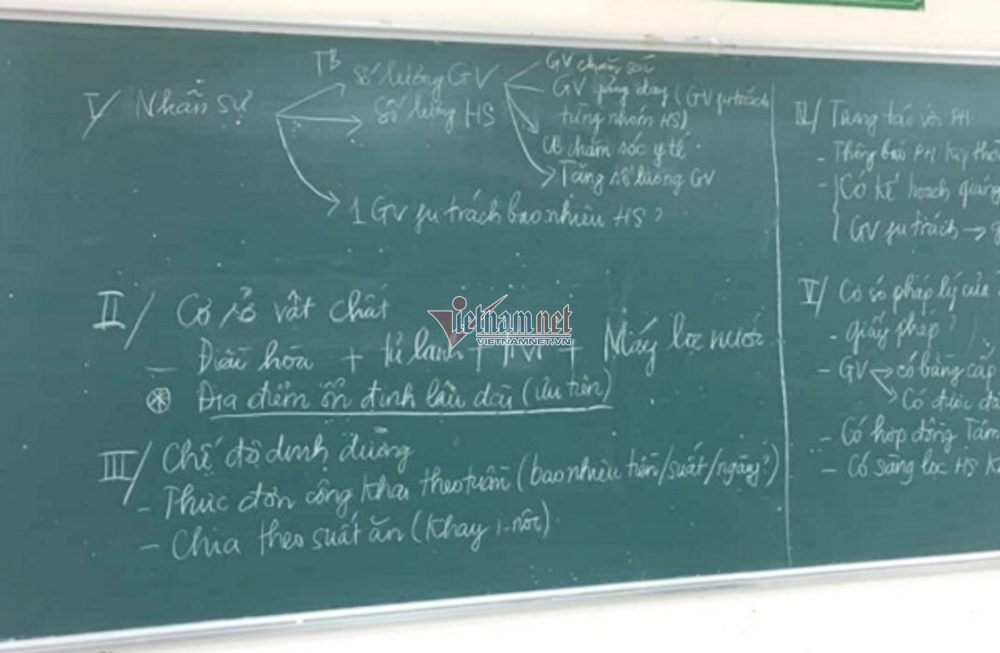 I/ Nhân sự
TB số lượng GV
số lượng HS
GV chăm sóc
GV giảng dạy (GV phụ trách
từng nhóm HS)
chăm sóc y tế
Tăng số lượng GV
1 GV phụ trách bao nhiêu HS?
II/ Cơ sở vật chất
- Điều hòa + tủ lạnh + Tivi + Máy lọc nước
* Địa điểm ổn định lâu dài (ưu tiên)
III/ Chế độ dinh dưỡng
- Thực đơn công khai theo tuần (bao nhiêu tiền/suất/ngày?)
- Chia theo suất ăn (Khay i-nốc)
IV/ Tương tác với PH
- Thông báo PH kịp thời
- Có kế hoạch
GV phụ trách →
V/ Cơ sở pháp lý của
- giấy phép?
- GV có bằng cấp
Có được
- Có hợp đồng
- Có sàng lọc HS
Vietnam.net
VIETNAMNET.VN